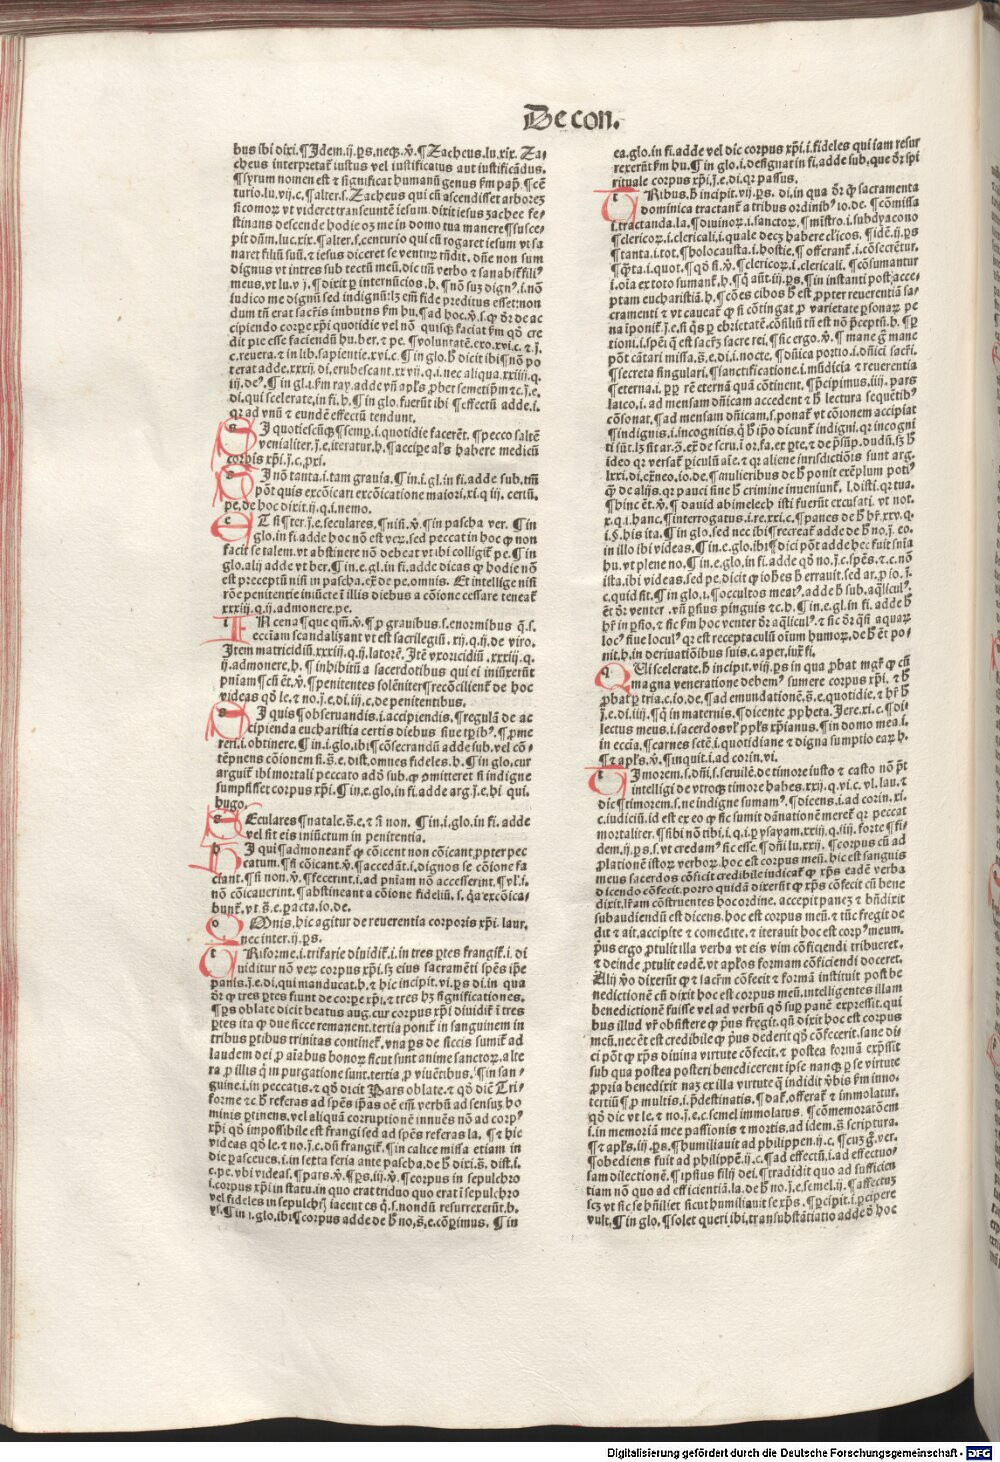 De con.
bus ibi dixi. ¶ Idem. ij. ꝑs. neqꝫ. v̄. ¶ Zacheus. lu. xix. Za-
cheus interpretat᷑ iustus vel iustificatus aut iustificādus.
¶ syrum nomen est ⁊ significat humanū genus ẜm pap̄. ¶ cē
turio. lu. vij. c. ¶ alter. s. Zacheus qui cū ascendisset arborez
sicomoꝝ vt videret transeuntē iesum. dixit iesus zachee fe-
stinans descende hodie oꝫ me in domo tua manere ¶ susce-
pit dn̄m. luc. xix. ¶ alter. s. centurio qui cū rogaret iesum vt sa
naret filiū suū. ⁊ iesus diceret se venturū rn̄dit. dn̄e non sum
dignus vt intres sub tectū meū. dic
meus. vt lu. vij. ¶ dixit ꝑ internūcios. h. ¶ nō
iudico me dignū sed indignū: lꝫ
dum tn̄ erat
cipiendo corpe xp̄i quotidie vel nō
dit pie esse faciendū
c. reuera. ⁊ in lib. sapientie. xvi. c. ¶ in glo. h̄ dicit ibi ¶ nō po
terat adde. xxxij. di. erubescant. xxvij. q. i. nec aliqua. xxiiij. q.
di. qui scelerate. in fi. h. ¶ in glo. fuerūt ibi ¶ effectū adde. i.
qꝛ ad vnū ⁊ eundē effectū tendunt.
SI quotiescūqꝫ ¶ semꝑ. i. quotidie facerēt. ¶ pecco saltē
venialiter. ȷ̄. e. iteratur. h. ¶ accipe al's habere medicū
corpis xp̄i. ȷ̄. c. ꝓxi.
SI nō tanta. i. tam grauia. ¶ in. i. gl. in fi. adde sub. tn̄
pōt quis excōicari excōicatione maiori. xi. q. iij. certū.
pe. de hoc dixit. ij. q. i. nemo.
ET si ¶ ter. ȷ̄. e. seculares. ¶ nisi. v̄. ¶ in pascha ver. ¶ in
glo. in fi. adde hoc nō est veꝝ. sed peccat in hoc ꝙ non
facit se talem. vt abstinere nō debeat vt ibi colligit᷑ pe. ¶ in
glo. alij adde vt ber. ¶ in. e. gl. in fi. adde dicas ꝙ hodie nō
est preceptū nisi in pascha. ex̄ de pe. omnis. Et intellige nisi
rōe penitentie iniūcte ī illis diebus a cōione cessare teneat᷑
xxxiij. q. ij. admonere. pe.
IN cena ¶ que qm̄. v̄. ¶ ꝓ grauibus. s. enormibus q̄. s.
ecc̄iam scandalizant vt est sacrilegiū. xij. q. ij. de viro.
Item matricidiū. xxxiij. q. ij. latorē. Itē vxoricidiū. xxxiij. q.
ij. admonere. h. ¶ inhibitū a sacerdotibus qui ei iniūxerūt
pniam ¶ cū ēt. v̄. ¶ penitentes solēniter ¶ recōcilient᷑ de hoc
videas qd̄ le. ⁊ no. ȷ̄. e. di. iij. c. de penitentibus.
SI quis ¶ obseruandis. i. accipiendis. ¶ regulā de ac
cipienda eucharistia certis diebus siue tꝑib᷒. ¶ ꝓme
reri. i. obtinere. ¶ in. i. glo. ibi ¶ cōsecrandū adde sub. vel cō-
tēpnens cōionem si. s̄. e. dist. omnes fideles. h. ¶ in glo. cur
arguit᷑ ibi mortali peccato add̄ sub. ꝙ omitteret si indigne
sumpsisset corpus xp̄i. ¶ in. e. glo. in fi. adde arg. ȷ̄. e. hi qui.
hugo.
SEculares ¶ natale. s̄. e. ⁊ si non. ¶ in. i. glo. in fi. adde
vel sit eis iniūctum in penitentia.
HI qui ¶ admoneant᷑ ꝙ cōicent non cōicant ꝓpter pec
catum. ¶ si cōicant. v̄. ¶ accedāt. i. dignos se cōione fa
ciant. ¶ si non. v̄. ¶ fecerint. i. ad pniam nō accesserint. ¶ vl'. i.
nō cōicauerint. ¶ abstineant a cōione fideliū. s. q̄a excōica-
bunt᷑. vt s̄. e. peracta. io. de.
OMnis. hic agitur de reuerentia corporis xp̄i. laur.
nec inter. ij. ꝑs.
TRiforme. i. trifarie diuidit᷑. i. in tres ꝑtes frangit᷑. i. di
uiditur nō veꝝ corpus xp̄i. sꝫ eius sacramēti spēs ip̄e
panis. ȷ̄. e. di. qui manducat. h. ⁊ hic incipit. vi. ꝑs di. in qua
dr̄ ꝙ tres ꝑtes fiunt de corpe xp̄i. ⁊ tres hꝫ significationes.
¶ ꝑs oblate dicit beatus aug. cur corpus xp̄i diuidit᷑ ī tres
ꝑtes ita ꝙ due sicce remanent. tertia ponit᷑ in sanguinem in
tribus ꝑtibus trinitas continet᷑. vna ꝑs de siccis sumit᷑ ad
laudem dei ꝓ aīabus bonoꝝ sicut sunt anime sanctoꝝ. alte
ra ꝓ illis q̄ in purgatione sunt. tertia ꝓ viuētibus. ¶ in san-
guine. i. in peccatis. ⁊ qd̄ dicit Pars oblate. ⁊ qd̄ dic̄ Tri-
forme ⁊c̄ h̄ referas ad spēs ip̄as
minis ꝑtinens. vel aliquā corruptionē innuēs nō ad corp᷒
xp̄i qd̄ impossibile est frangi sed ad spēs referas la. ¶ ⁊ hic
videas qd̄ le. ⁊ no. ȷ̄. c. dū frangit᷑. ¶ in calice missa etiam in
die parasceues. i. in sexta feria ante pascha. de h̄ dixi. s̄. dist. i.
c. pe. vbi videas. ¶ pars. v̄. ¶ ꝑs. iij. v̄. ¶ corpus in sepulchro
i. corpus xp̄i in statu. in quo erat triduo quo erat ī sepulchro
vel fideles in sepulchris iacentes q̄. s. nondū resurrexerūt. h.
¶ in. i. glo. ibi ¶ corpus adde de h̄ no. s̄. e. cōꝑimus. ¶ in
ea. glo. in fi. adde vel dic corpus xp̄i. i. fideles qui iam resur
rexerūt ẜm hu. ¶ in glo. i. designat in fi. adde sub. que dr̄ spi
rituale corpus xp̄i. ȷ̄. e. di. qꝛ passus.
TRibus. h̄ incipit. vij. ꝑs. di. in qua dr̄ ꝙ sacramenta
dominica tractant᷑ a tribus ordinib᷒ io. de. ¶ cōmissa
i. tractanda. la. ¶ diuinoꝝ. i. sanctoꝝ. ¶ ministro. i. subdyacono
¶ clericoꝝ. i. clericali. i. quale decꝫ habere cl'icos. ¶ idē. ij. ꝑs
¶ tanta. i. tot. ¶ holocausta. i. hostie. ¶ offerant᷑. i. cōsecrētur.
¶ q̄ta. i. quot. ¶ qd̄ si. v̄. ¶ clericoꝝ. i. clericali. ¶ cōsumantur
i. oīa ex toto sumant᷑. h. ¶ q̄ aūt. iij. ꝑs. ¶ in instanti post acce-
ptam eucharistiā. h. ¶ cōes cibos h̄ est ꝓpter reuerentiā sa-
cramenti ⁊ vt caueat᷑ ꝙ si cōtingat ꝓ varietate ꝑsonaꝝ pe
na īponit᷑. ȷ̄. e. si q̄s ꝑ ebrietatē. cōsiliū tn̄ est nō p̄ceptū. h. ¶ ꝑ
tioni. i. spēi q̄ est sacrꝫ sacre rei. ¶ sic ergo. v̄. ¶ mane ḡ mane
pōt cātari missa. s̄. e. di. i. nocte. ¶ dn̄ica portio. i. dn̄ici sacri.
¶ secreta singulari. ¶ sanctificatione. i. mūdicia ⁊ reuerentia
¶ eterna. i. ꝓꝑ rē eternā quā cōtinent. ¶ p̄cipimus. iiij. pars
laico. i. ad mensam dn̄icam accedent᷑ ⁊ h̄ lectura sequētib᷒
cōsonat. ¶ ad mensam dn̄icam. s. ponat᷑ vt cōionem accipiat
¶ indignis. i. incognitis. q̄ h̄ ip̄o dicunt᷑ indigni. qꝛ incogni
ti sūt. lꝫ sit ar. ꝯ. ex̄ de scru. i or. fa. ex ꝑte. ⁊ de p̄sūp. dudū. sꝫ h̄
ideo qꝛ versat᷑ piculū aīe. ⁊ qꝛ aliene iurisdictiōis sunt arg.
lxxi. di. ex̄neo. io. de. ¶ mulieribus de h̄ ponit exēplum poti᷒
q̄ de alijs. qꝛ pauci sine h̄ crimine inueniunt᷑. l. disti. qꝛ tua.
¶ hinc ēt. v̄. ¶ dauid abimelech isti fuerūt excusati. vt not.
x. q. i. hanc. ¶ interrogatus. i. re. xxi. c. ¶ panes de h̄ hr̄. xxv. q.
i. §. his ita. ¶ in glo. i. sed nec ibi ¶ recreat᷑ adde de h̄ no. ȷ̄. eo.
in illo ibi videas. ¶ in. e. glo. ibi ¶ dici pōt adde hec fuit snīa
hu. vt plene no. ¶ in. e. glo. in fi. adde qd̄ no. ȷ̄. c. spēs. ⁊ c. nō
ista. ibi videas. sed pe. dicit ꝙ ioh̄es h̄ errauit. sed ar. ꝓ io. ȷ̄.
c. quid sit. ¶ in glo. i. ¶ occultos meat᷒. adde h̄ sub. aq̄licul᷒.
ēt dr̄ venter. vn̄ ꝑsius pinguis ⁊c. h. ¶ in. e. gl. in fi. adde h̄
hr̄ in ꝑsio. ⁊ sic ẜm hoc venter dr̄ aq̄licul᷒. ⁊ sic dr̄ q̄si aquaꝝ
loc᷒ siue locul᷒ qꝛ est receptaculū oīum humoꝝ. de h̄ ēt po-
nit. h. in deriuatiōibus suis. c. aper. iux̄ fi.
QUi scelerate. h̄ incipit. viij. ꝑs in qua ꝓbat mgr̄ ꝙ cū
magna veneratione debem᷒ sumere corpus xp̄i. ⁊ h̄
ꝓbat ꝑ tria. c. io. de. ¶ ad emundationē. s̄. e. quotidie. ⁊ hr̄ h̄
ȷ̄. e. di. iiij. ¶ q̄ in maternis. ¶ dicente ꝓpheta. Iere. xi. c. ¶ di-
lectus meus. i. sacerdos vl' ppl's xp̄ianus. ¶ in domo mea. i.
in ecc̄ia. ¶ carnes sctē. i. quotidiane ⁊ digna sumptio eaꝝ h.
¶ ⁊ apl's. v̄. ¶ inquit. i. ad corin. vi.
TImorem. s. dn̄i. s. seruilē. de timore iusto ⁊ casto nō p̄t
intelligi de vtroqꝫ timore habes. xxij. q. vi. c. vl. lau. ⁊
dic ¶ timorem. s. ne indigne sumam᷒. ¶ dicens. i. ad corin. xi.
c. iudiciū. id est ex eo ꝙ sic sumit dānationē meret᷑ qꝛ peccat
mortaliter. ¶ sibi nō tibi. i. q. i. per ysayam. xxiij. q. iiij. forte ¶ fi-
dem. ij. ꝑs. s. vt credam᷒ sic esse. ¶ dn̄i lu. xxij. ¶ corpus cū ad
ꝓlationē istoꝝ verboꝝ. hoc est corpus meū. hic est sanguis
meus sacerdos cōficit credibile indicat᷑ ꝙ xp̄s eadē verba
dicendo cōfecit. porro quidā dixerūt ꝙ xp̄s cōfecit cū bene
dixit. lr̄am cōstruentes hoc ordine. accepit panez ⁊ bn̄dixit
subaudiendū est dicens. hoc est corpus meū. ⁊ tūc fregit de
dit ⁊ ait. accipite ⁊ comedite. ⁊ iterauit hoc est corp᷒ meum.
prius ergo ꝓtulit illa verba vt eis vim cōficiendi tribueret.
⁊ deinde ꝓtulit eadē. vt apl'os formam cōficiendi doceret.
Alij vo dixerūt ꝙ ⁊ lacr̄m cōfecit ⁊ formā instituit post be
nedictionē cū dixit hoc est corpus meū. intelligentes illam
benedictionē fuisse vel ad verbū qd̄ suꝑ panē expressit. qui
bus illud vr̄ obsistere ꝙ prius fregit. qū dixit hoc est corpus
meū. nec ēt est credibile ꝙ prius dederit qd̄ cōfecerit. sane di
ci pōt ꝙ xp̄s diuina virtute cōfecit. ⁊ postea formā exp̄ssit
sub qua postea posteri benedicerent ipse nanqꝫ ꝑ se virtute
ꝓpria benedixit naꝫ ex illa virtute q̄ indidit v̄bis ẜm inno.
tertiū ¶ ꝓ multis. i. p̄destinatis. ¶ offerat᷑ ⁊ immolatur.
qd̄ dic vt le. ⁊ no. ȷ̄. e. c. semel immolatus. ¶ cōmemoratōem
i. in memoriā mee passionis ⁊ mortis. ad idem. s̄. scriptura.
¶ ⁊ apl's. iij. ꝑs. ¶ humiliauit ad philippen. ij. c. ¶ cuꝫ ḡ. ver.
¶ obediens fuit ad philippē. ij. c. ¶ ad effectū. i. ad effectuo-
sam dilectionē. ¶ ipsius filij dei. ¶ tradidit quo ad sufficien
tiam nō quo ad efficientiā. la. de h̄ no. ȷ̄. e. semel. ij. ¶ affectuꝫ
scꝫ vt sic se hūiliet sicut humiliauit se xp̄s. ¶ ꝑcipit. i. ꝑcipere
vult. ¶ in glo. ¶ solet queri ibi. transubstātiatio adde h̄ hoc
Digitalisierung gefördert durch die Deutsche Forschungsgemeinschaft - DFG